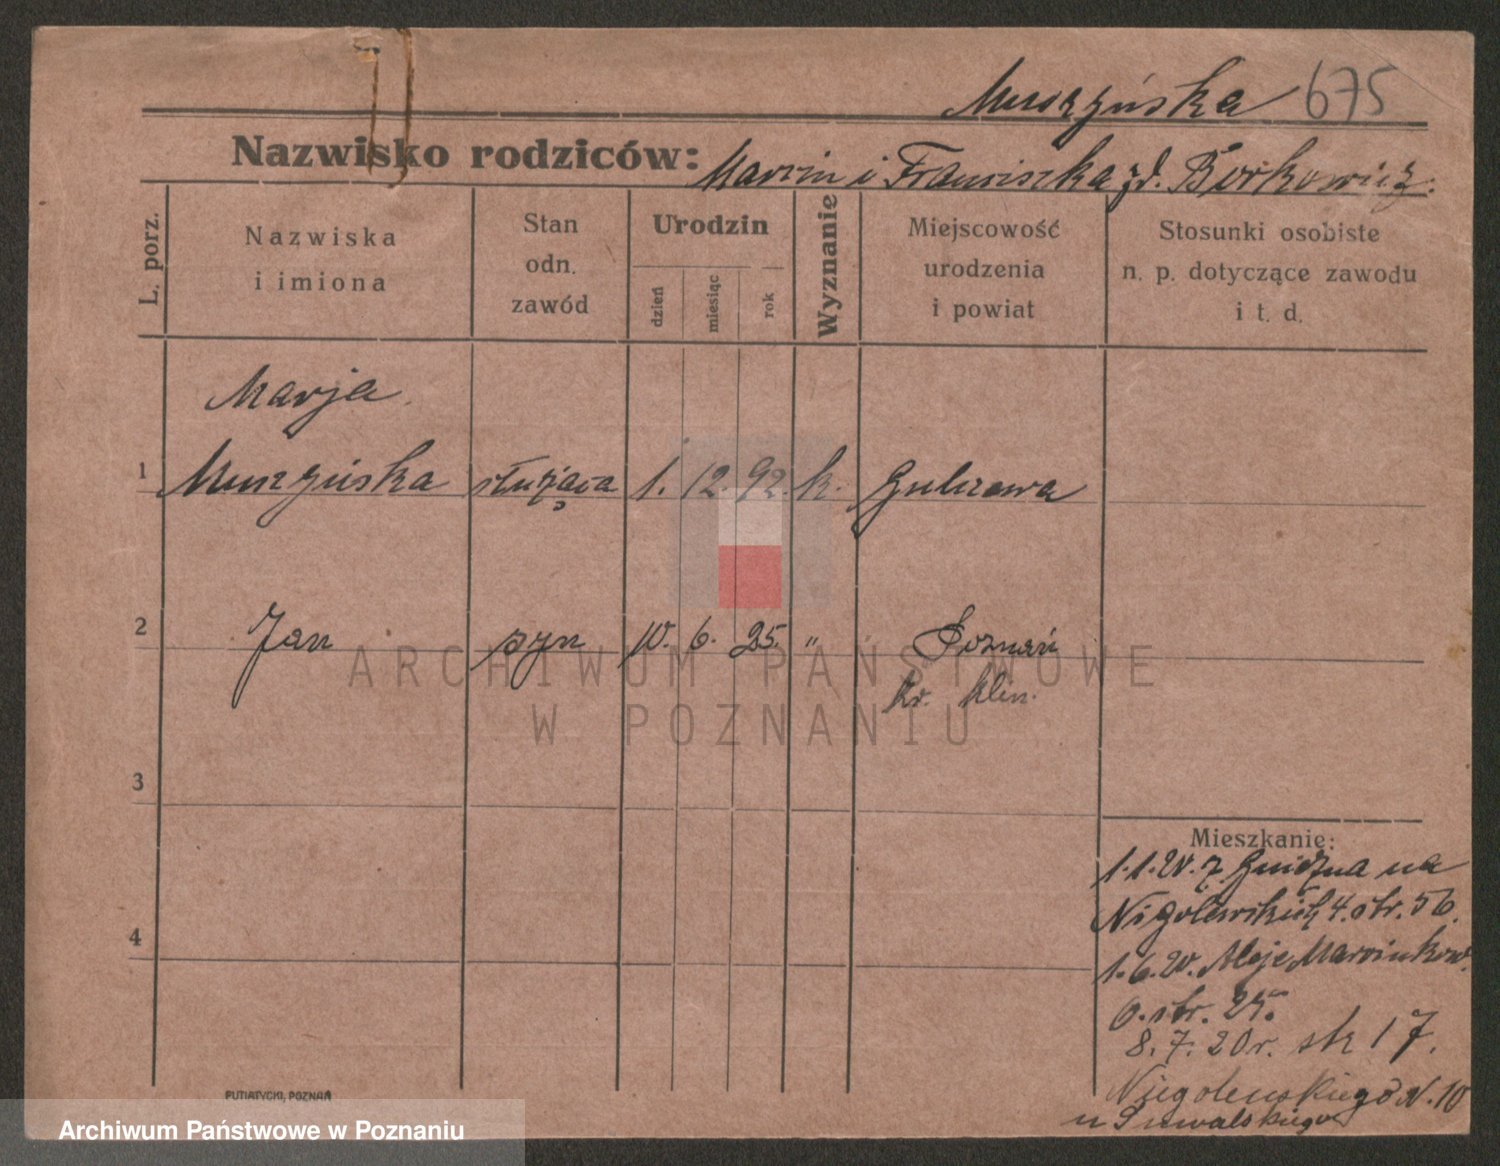 Muszyńska 675
Nazwisko rodziców: Marcin i Franciszka zd. Borkowicz.
L. porz.
Nazwiska
i imiona
Stan
odn.
zawód
Urodzin
dzień
miesiąc
rok
Wyznanie
Miejscowość
urodzenia
i powiat
Stosunki osobiste
n. p. dotyczące zawodu
i t. d.
Marja
1 Muszyńska służąca 1. 12. 92. k. Gulczewa
2 Jan syn 10. 6. 25. " Poznań
kr. klin.
3
4
Mieszkanie:
1.1.20. z Gniezna na
Nigolewskich 4. str. 56.
1.6.20. Aleje Marcinkow.
6. str. 25.
8.7.20r. str 17.
Niegolewskiego N. 10
u Suwalskiego
PUTIATYCKI, POZNAŃ
ARCHIWUM PAŃSTWOWE
W POZNANIU
Archiwum Państwowe w Poznaniu